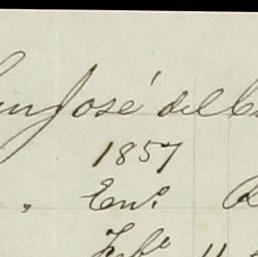 San José del
1857
Enº
Febº 11